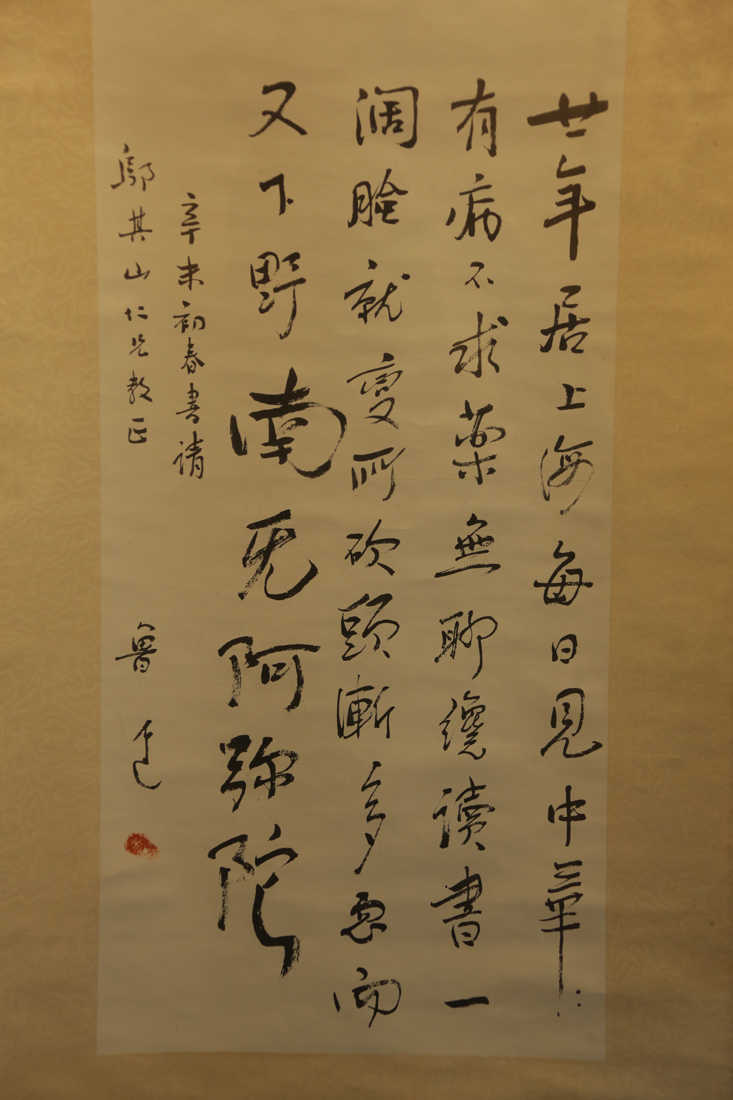 廿年居上海每日見中華
有病不求藥無聊纔讀書一
濶臉就變所砍頭漸多忽而
又下野南无阿弥陀
辛未初春書請
鄔其山仁兄教正
魯迅